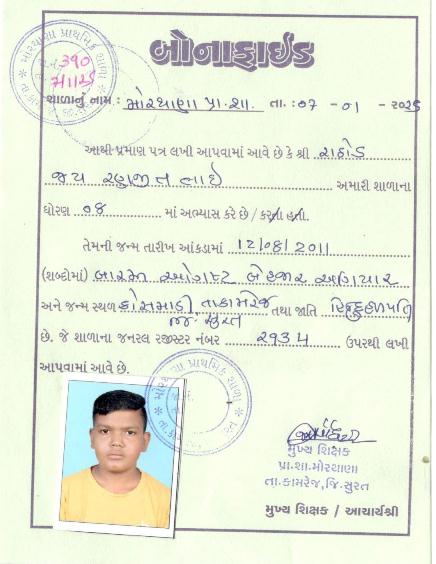 બોનાફાઈડ
શાળાનું નામ : મોરથાણા પ્રા.શા. તા. : ૦૭ - ૦૧ - ૨૦૨૬
આથી પ્રમાણ પત્ર લખી આપવામાં આવે છે કે શ્રી રાઠોડ
જય રણજીતભાઈ અમારી શાળાના
ધોરણ ૦૪ માં અભ્યાસ કરે છે / કરતા હતા.
તેમની જન્મ તારીખ આંકડામાં 12/08/2011
(શબ્દોમાં) બારમી ઓગષ્ટ બે હજાર અગિયાર
અને જન્મ સ્થળ કોસમાડી, તા.કામરેજ તથા જાતિ
જિ. સુરત
છે. જે શાળાના જનરલ રજીસ્ટર નંબર ૨૧૩૪ ઉપરથી લખી
આપવામાં આવે છે.
મુખ્ય શિક્ષક
પ્રા.શા.મોરથાણા
તા.કામરેજ,જિ.સુરત
મુખ્ય શિક્ષક / આચાર્યશ્રી